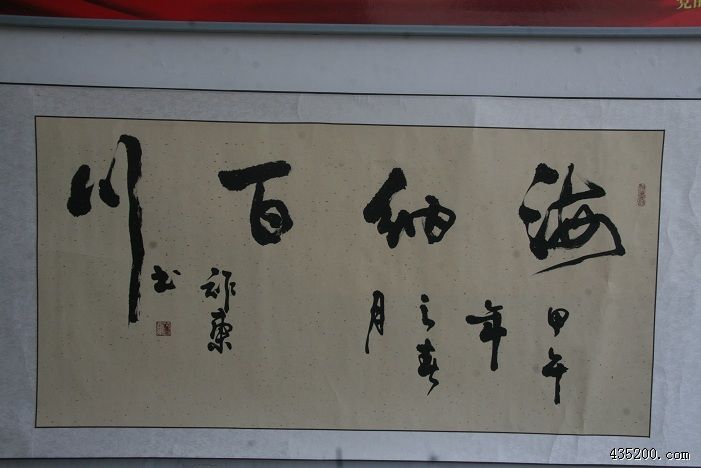 海纳百川
甲午
年
之春
月
书
435200.com